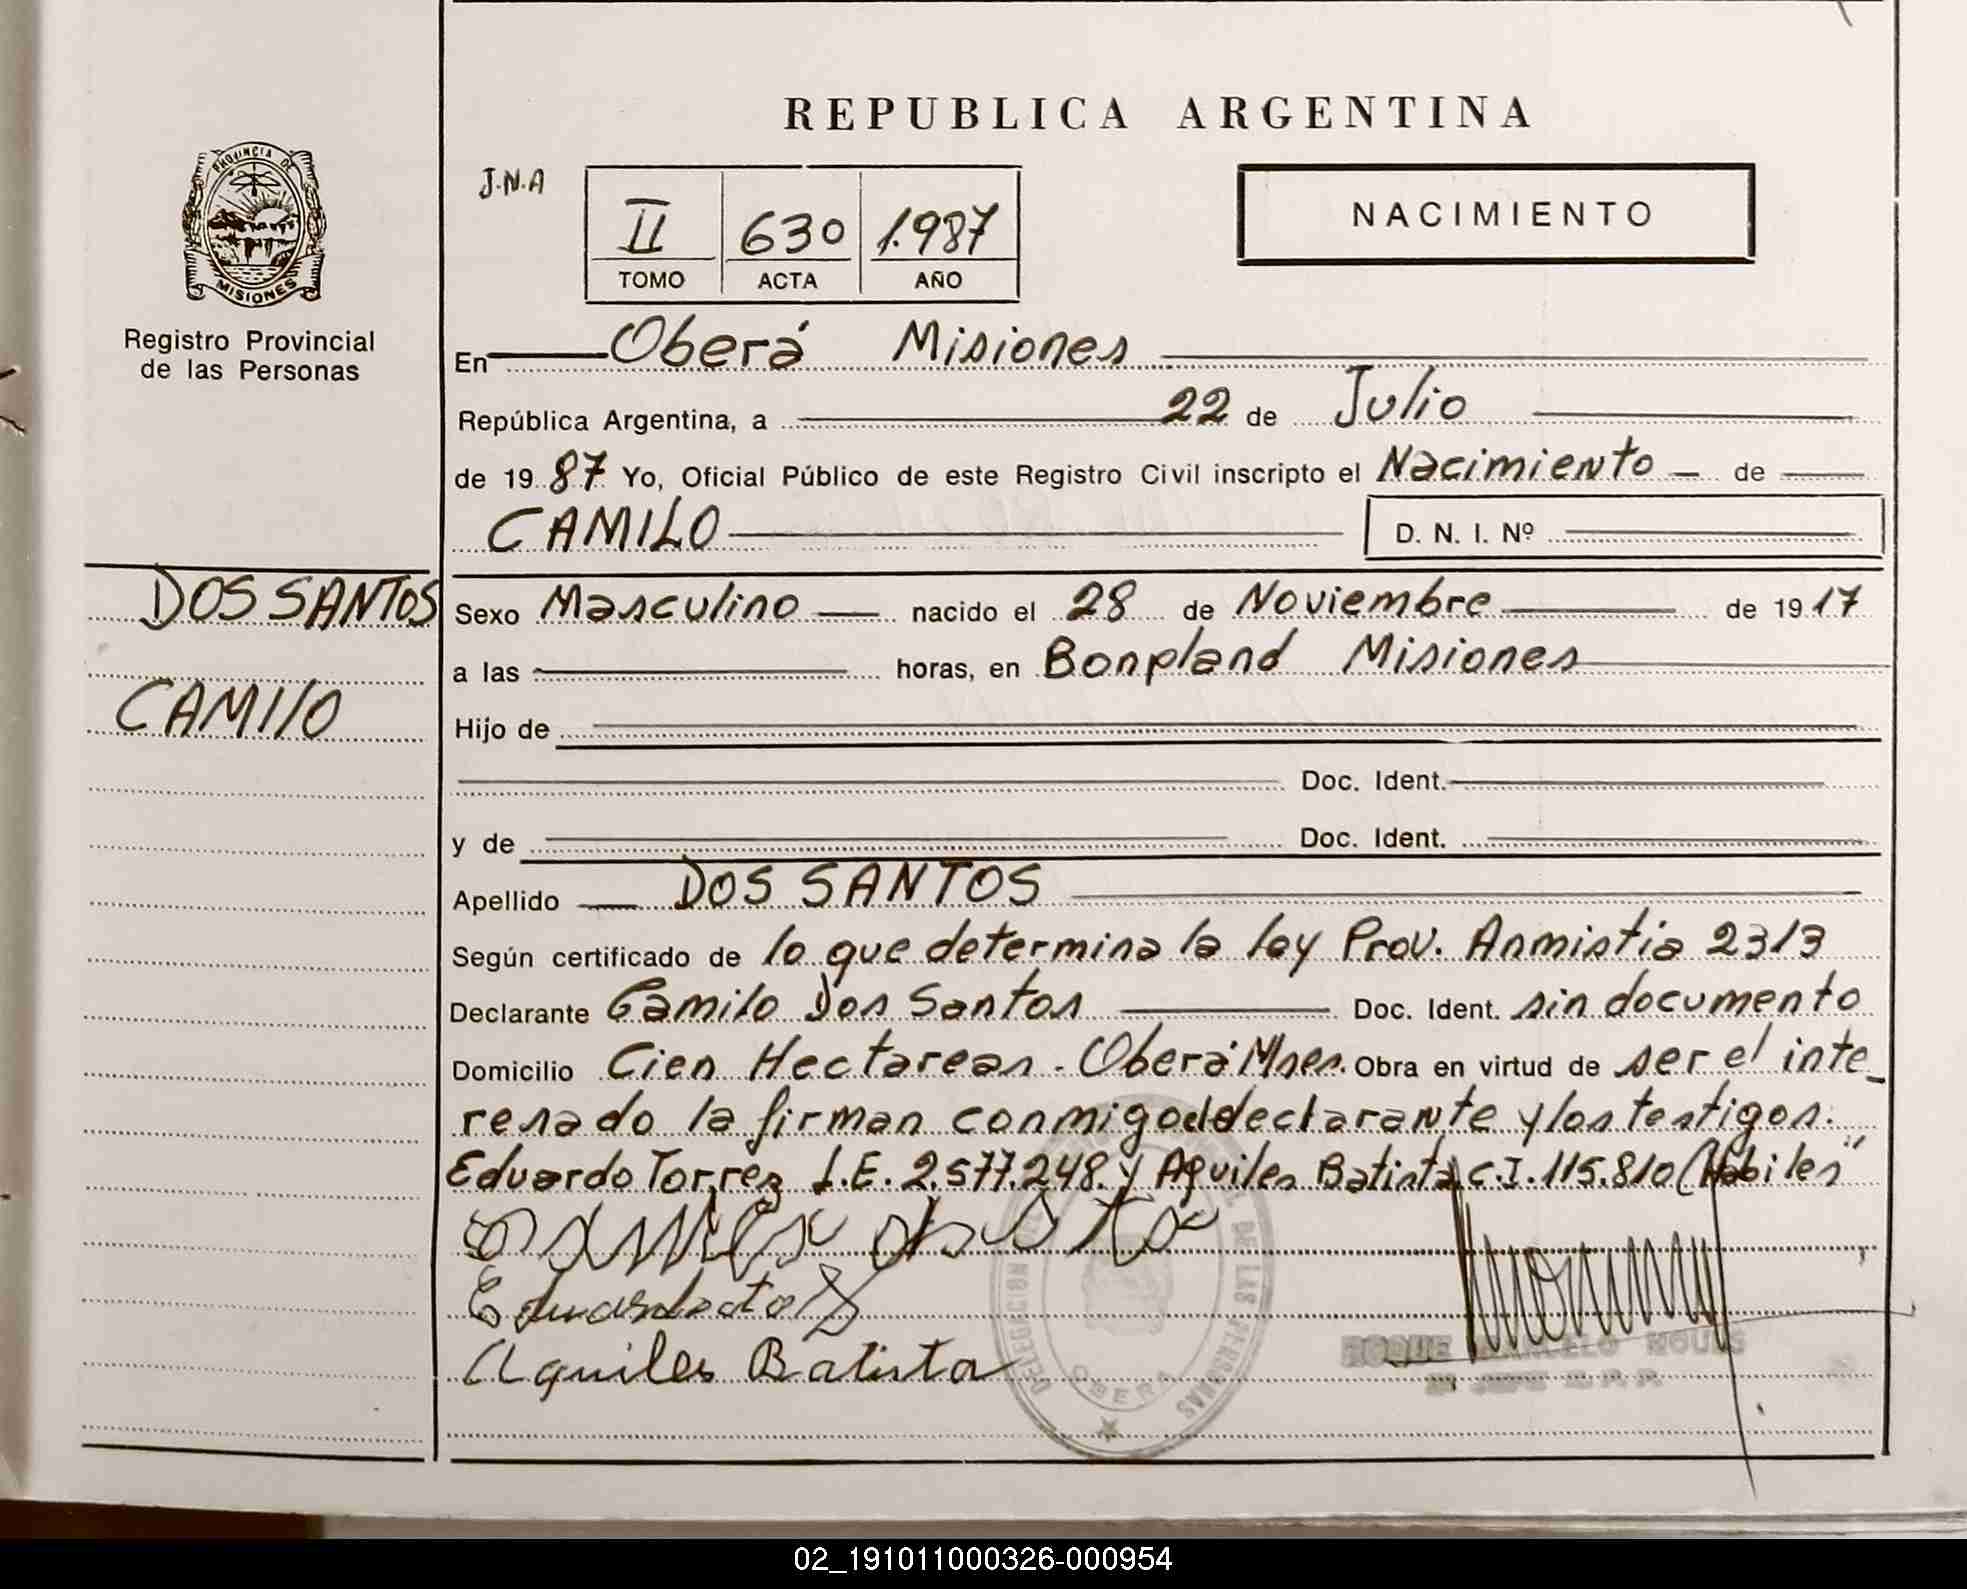 REPUBLICA ARGENTINA
J.N.A
II 630 1.987
TOMO ACTA AÑO
NACIMIENTO
PROVINCIA DE
MISIONES
Registro Provincial
de las Personas
DOS SANTOS
CAMILO
En Oberá Misiones
República Argentina, a 22 de Julio
de 1987 Yo, Oficial Público de este Registro Civil inscripto el Nacimiento de
CAMILO D. N. I. Nº
Sexo Masculino nacido el 28 de Noviembre de 1917
a las horas, en Bonpland Misiones
Hijo de
Doc. Ident.
y de Doc. Ident.
Apellido DOS SANTOS
Según certificado de lo que determina la ley Prov. Anmistia 2313
Declarante Camilo Dos Santos Doc. Ident. sin documento
Domicilio Cien Hectareas - Oberá Mnes. Obra en virtud de ser el inte_
resado la firman conmigo el declarante y los testigos.
Eduardo Torres L.E. 2.577.248. y Aquiles Batista C.I. 115.810 (Habiles"
Aquiles Batista
DELEGACION DE LAS PERSONAS
OBERA
ROQUE
02_191011000326-000954